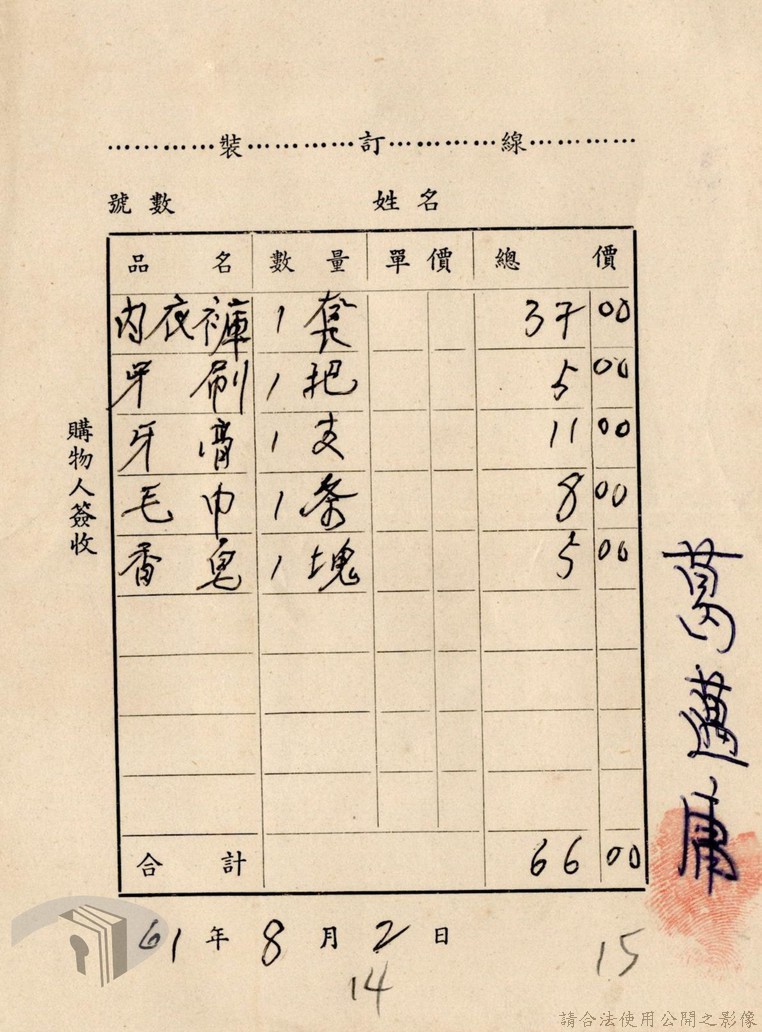 ………… 裝 ………… 訂 ………… 線 …………
號 數 姓 名
品 名 數 量 單 價 總 價
內衣褲 1 套 37 00
牙 刷 1 把 5 00
牙 膏 1 支 11 00
毛 巾 1 条 8 00
香 皂 1 塊 5 00
合 計 66 00
購物人簽收
葛 庸
61 年 8 月 2 日
14
15
請合法使用公開之影像